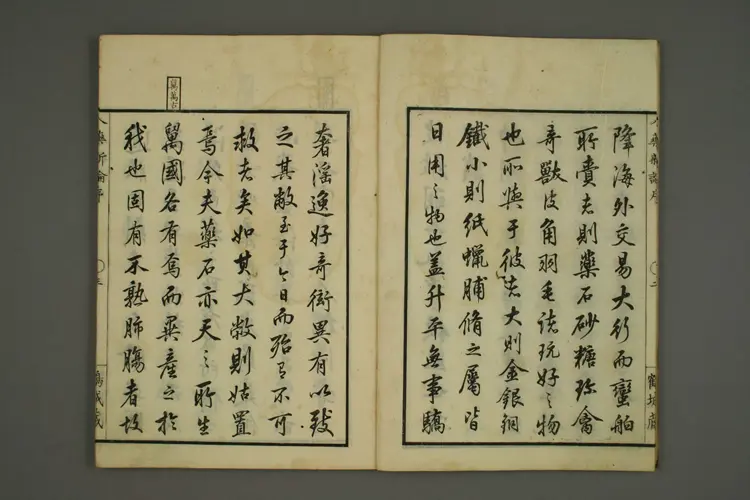 降海外交易大行而蠻舶
所賣者則藥石砂糖珍禽
奇獸皮角羽毛諸玩好之物
也所與于彼者大則金銀銅
鐵小則紙蠟脯脩之屬皆
日用之物也蓋升平無事驕
奢滛逸好奇衒異有以致
之其敝至于今日而殆有不可
救者矣如其大敝則姑置
焉今夫藥石亦天之所生
萬國各有焉而異產之於
我也固有不熟肺腸者故